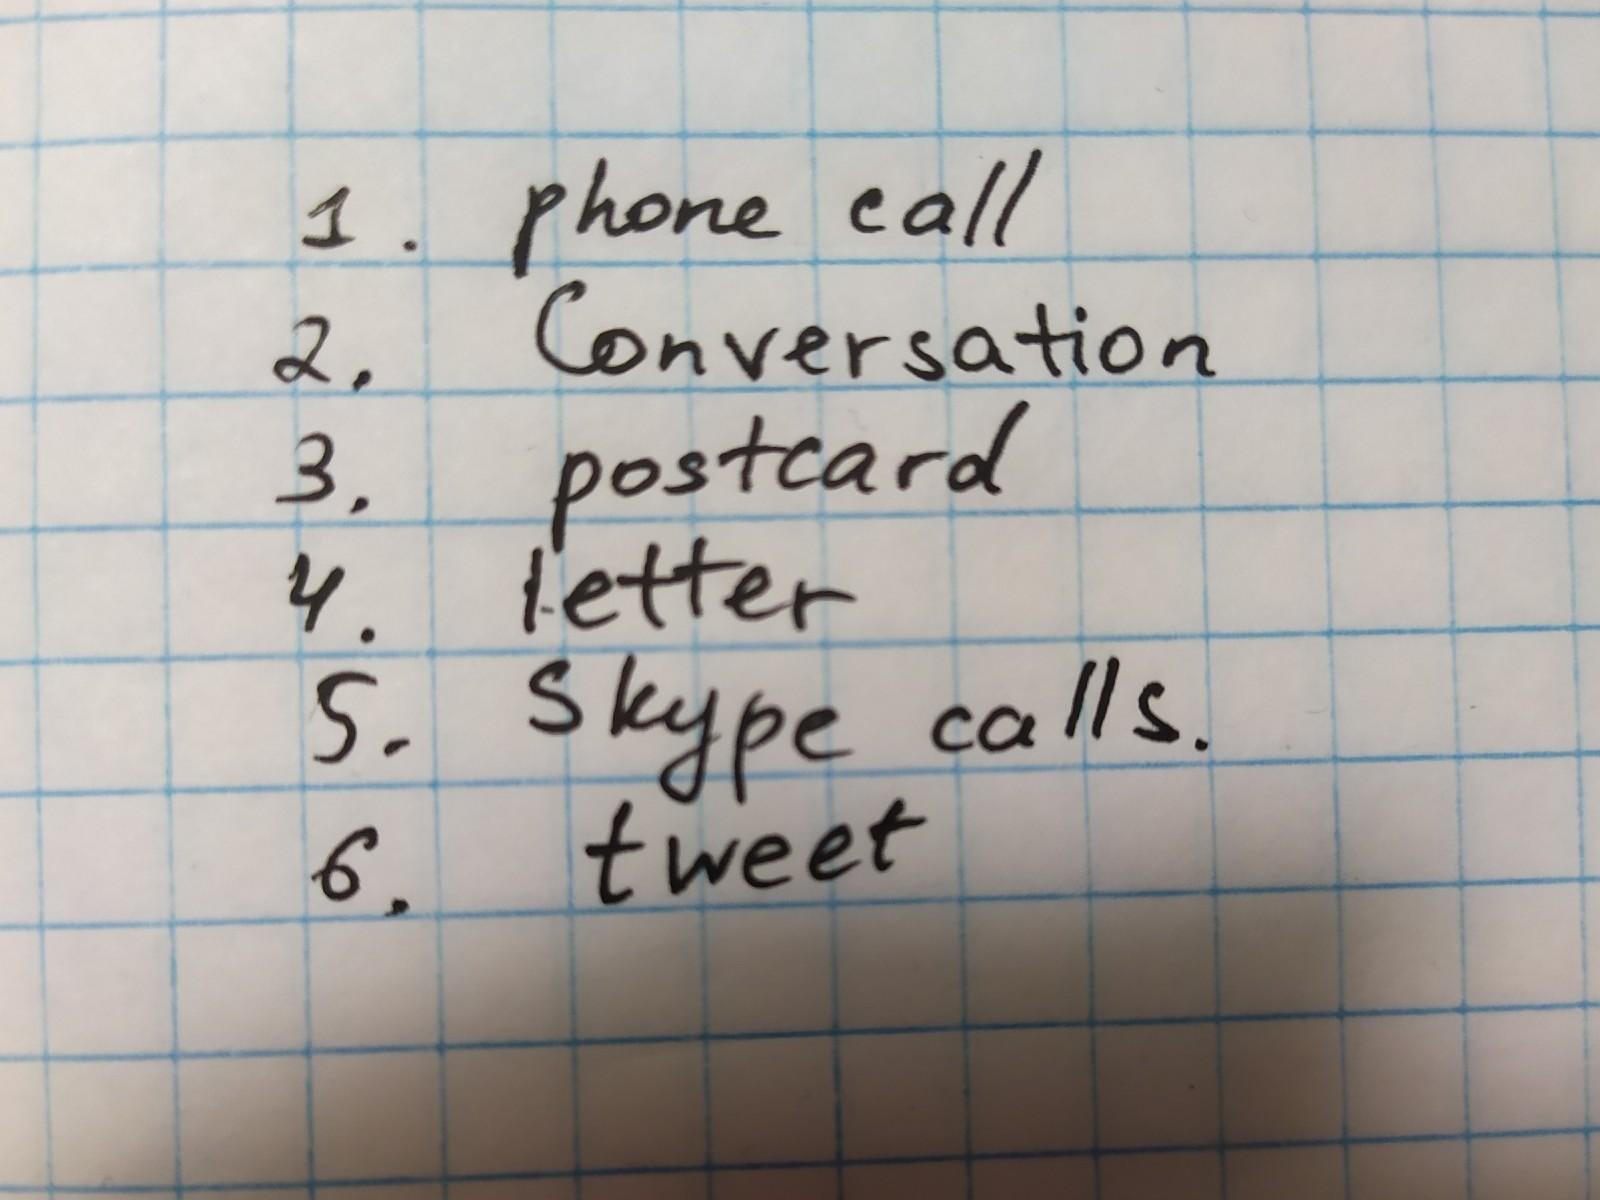 1. phone call
2. Conversation
3. postcard
4. letter
5. Skype calls.
6. tweet